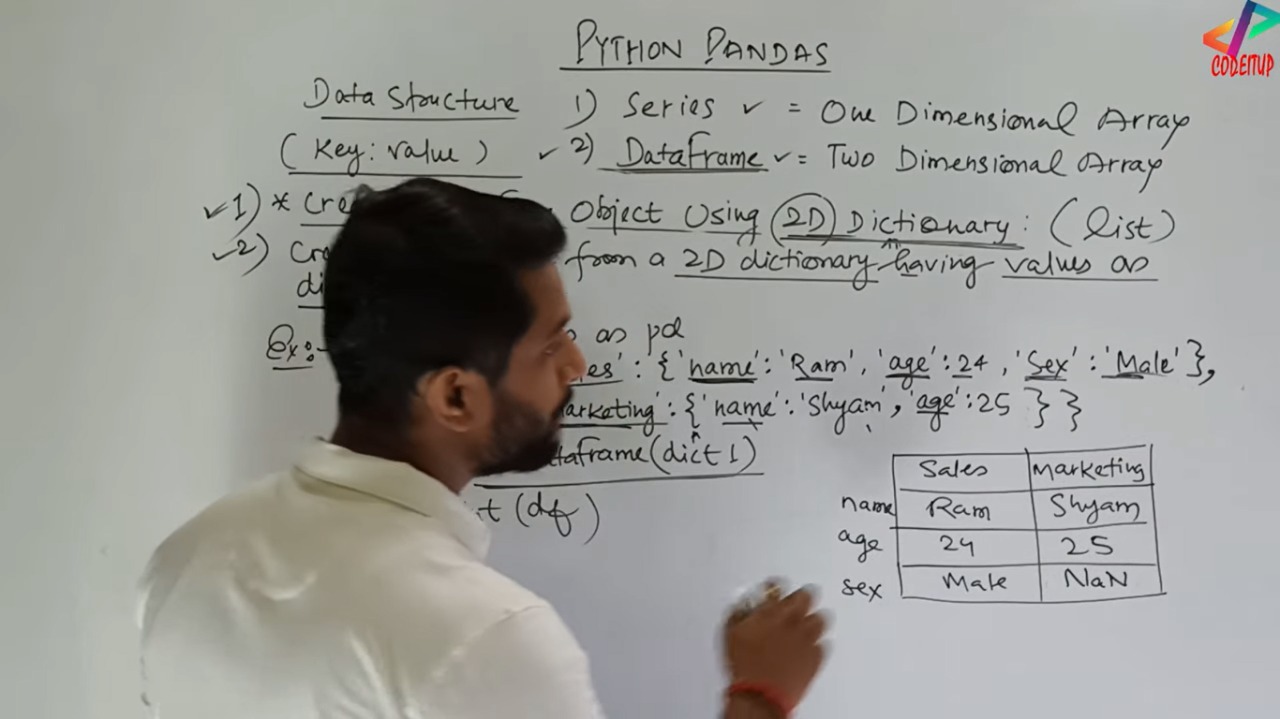 CODEITUP
PYTHON PANDAS
Data Structure 1) Series ✓ = One Dimensional Array
(Key: value) ✓ 2) DataFrame ✓ = Two Dimensional Array
✓ 1) * Object Using 2D Dictionary: (list)
✓ 2) from a 2D dictionary having values as
Ex:- as pd
: {'name': 'Ram', 'age': 24, 'Sex': 'Male'},
: {'name': 'Shyam', 'age': 25 } }
(dict1)
(df)
Sales Marketing
name Ram Shyam
age 24 25
sex Male NaN